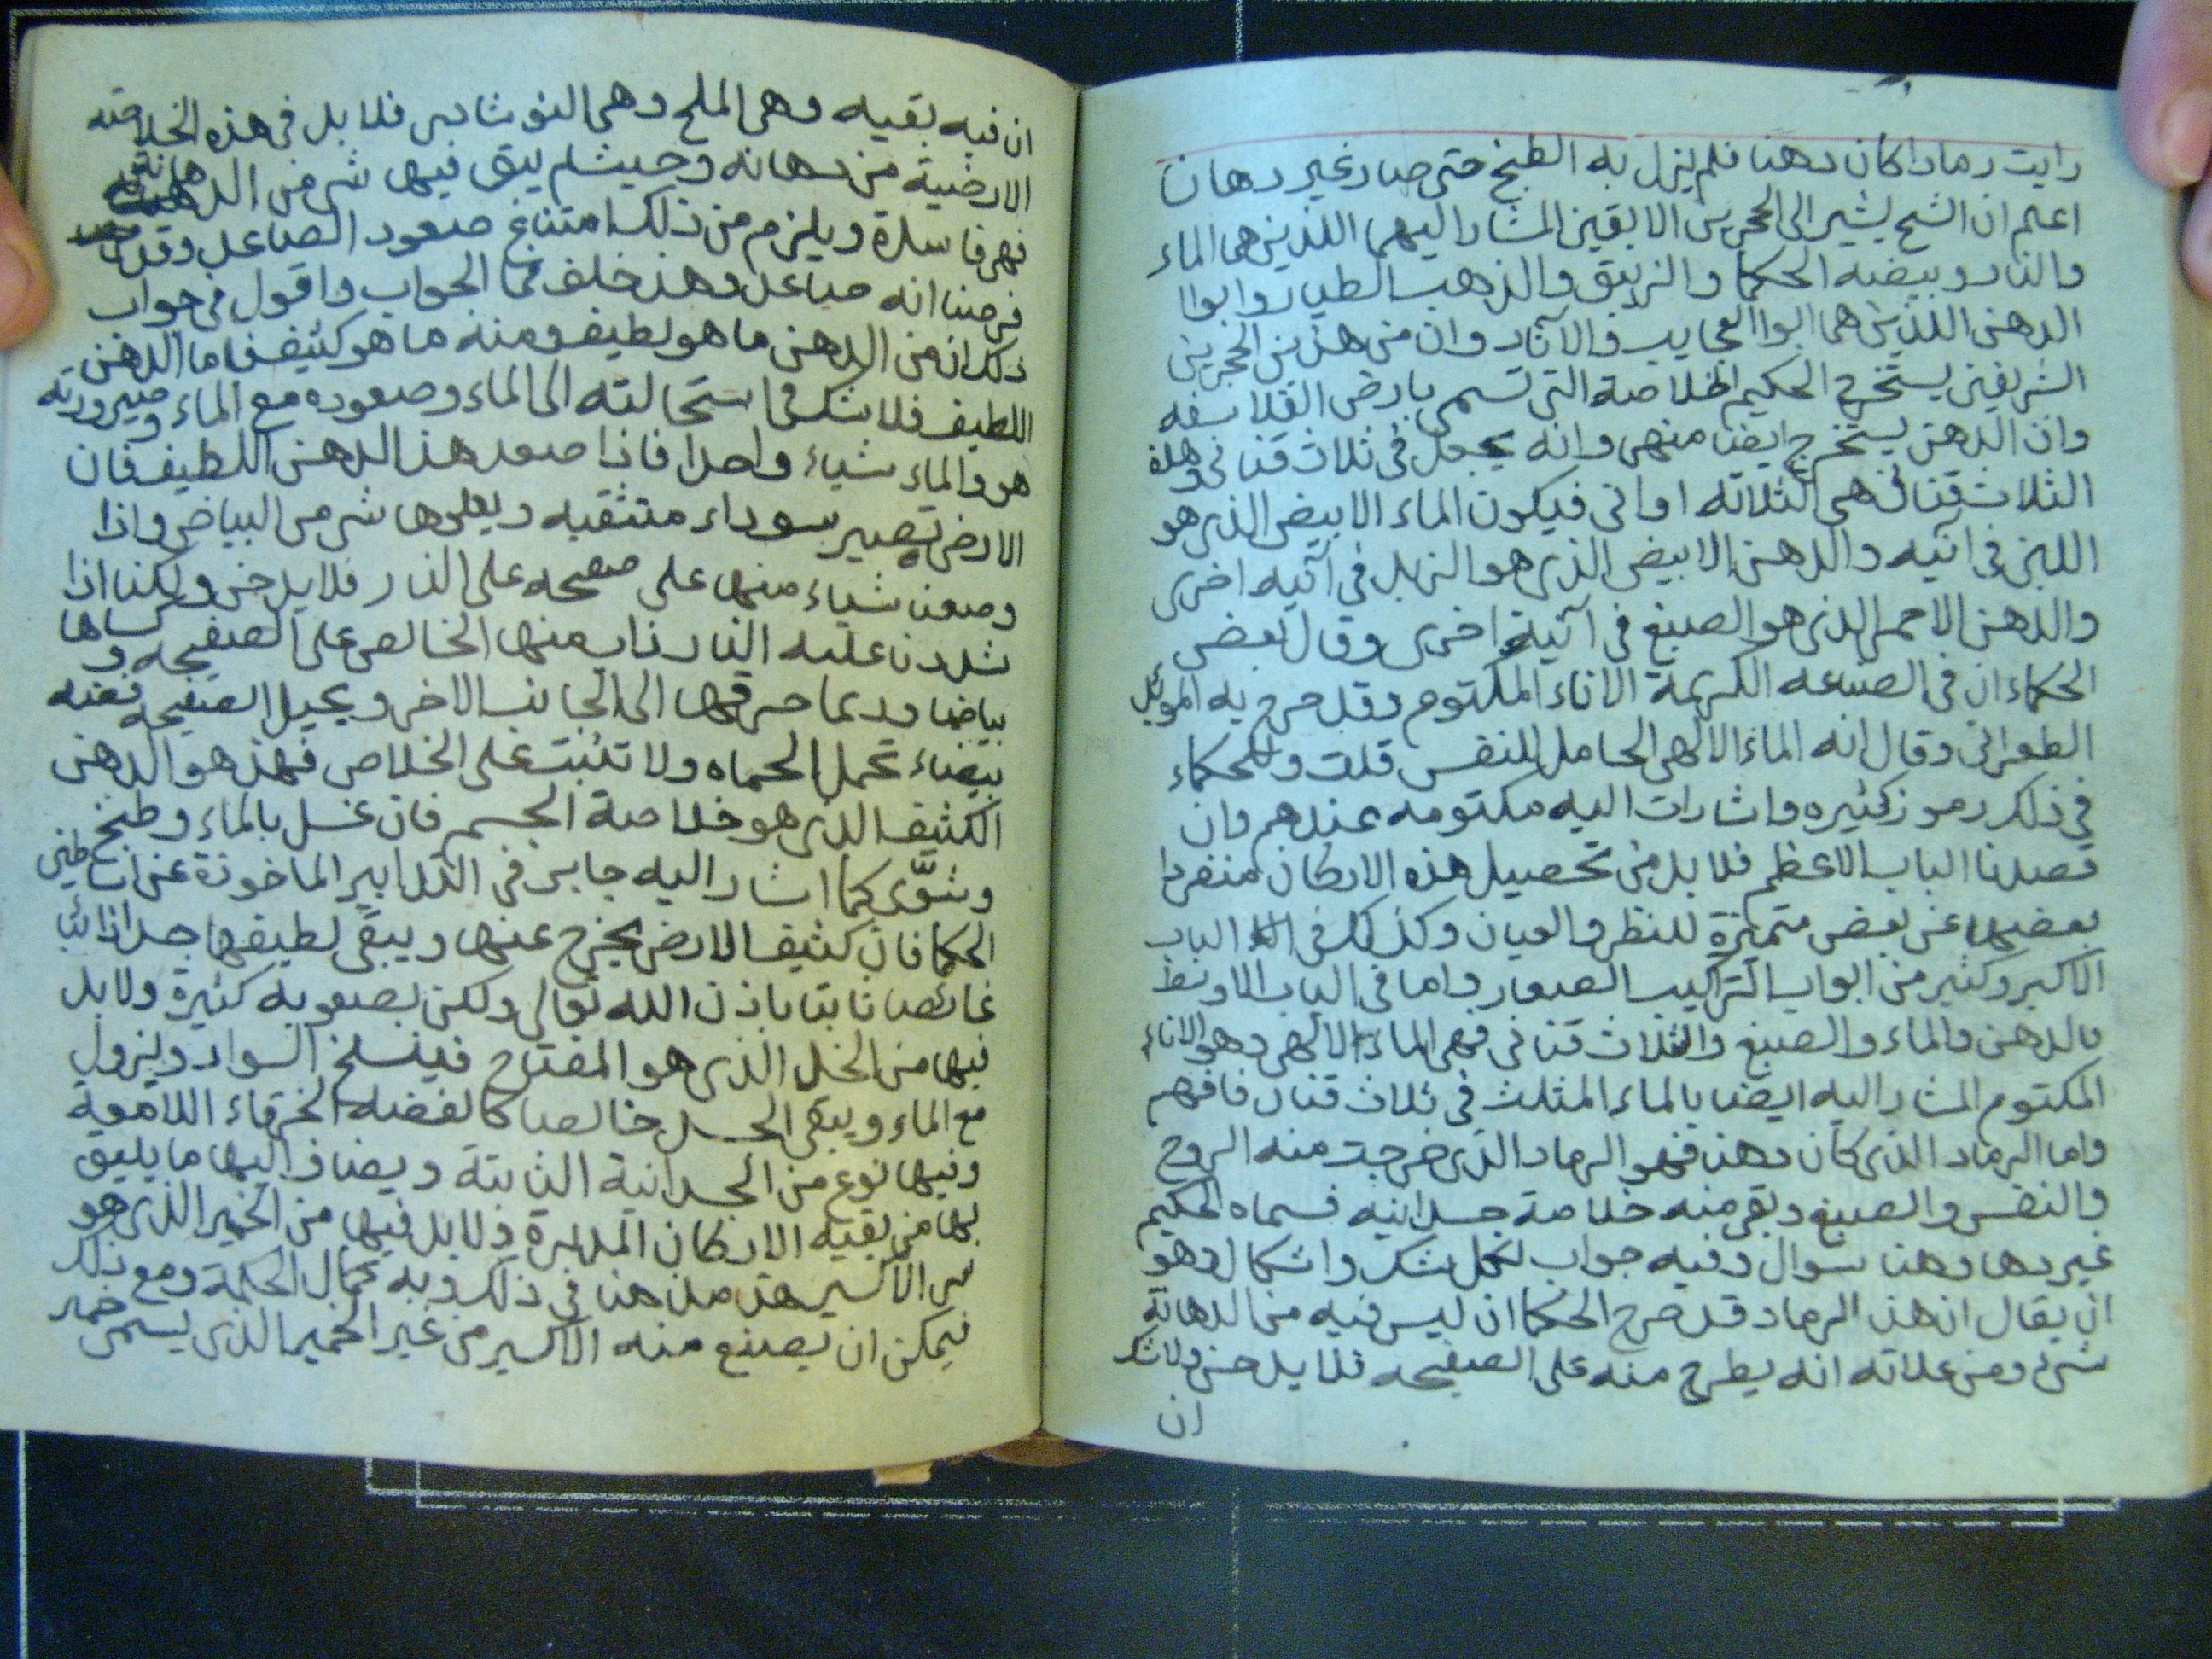 رايت رمادا كان دهنا فلم يزل به الطبخ حتى صار غير دهان
اعلم ان الشيخ يشير الى الحجرين الابقين المشار اليهما اللذين هما الماء
والنار وبيضة الحكما والزيبق والذهب الطيار وابوا
الدهن اللذين هما ابوا العجايب والآثار وان من هذين الحجرين
الشريفين يستخرج الحكيم الخلاصة التى تسمى بارض الفلاسفه
وان الدهن يستخرج ايضا منهى وانه يجعل فى ثلاث قنانى وهذه
الثلاث قنانى هى الثلاثه اوانى فيكون الماء الابيض الذى هو
اللبن فى انيه والدهن الابيض الذى هو الزبد فى آنيه اخرى
والدهن الاحمر الذى هو الصبغ فى آنية اخرى وقال بعض
الحكماء ان فى الصنعه الكريمة الاناء المكتوم وقد صرح به المويد
الطغرائى وقال انه الماء الالهى الحامل للنفس قلت وللحكماء
فى ذلك رموز كثيره واشارات اليه مكتومه عندهم وان
قصدنا الباب الاعظم فلا بد من تحصيل هذه الاركان منفردا
بعضها عن بعض متميزة للنظر والعيان وكذلك فى الباب
الاكبر وكثير من ابواب التراكيب الصغار واما فى الباب الاوسط
فالدهن والماء والصبغ والثلاث قنانى فهى الماء الالهى وهو الاناء
المكتوم المشار اليه ايضا بالماء المثلث فى ثلاث قنان فافهم
واما الرماد الذى كان دهنا فهو الرماد الذى خرجت منه الروح
والنفس والصبغ وبقى منه خلاصة جسدانيه فسماه الحكيم
غير دهان وهنا سوال وفيه جواب لكل شك واشكال وهو
ان يقال ان هذا الرماد قد صرح الحكما ان ليس فيه من الدهانة
شى ومن علاته انه يطرح منه على الصفيحه فلا يدخن ولا شك
ان
ان فيه بقيه وهى الملح وهى النوشادر فلا بد فى هذه الخلاصه
الارضية من دهانه وحيث لم يبق فيها شى من الدهانة
فهى فاسدة ويلزم من ذلك امتناع صعود الصاعد وقد
فرضنا انه صاعد وهذا خلف فما الجواب واقول فى جواب
ذلك ان من الدهن ما هو لطيف ومنه ما هو كثيف فاما الدهن
اللطيف فلا شك فى استحالته الى الماء وصعوده مع الماء وصيرورته
هو والماء شياء واحدا فاذا صعد هذا الدهن اللطيف فان
الارض تصير سوداء متثقبه ويعلوها شى من البياض واذا
وضعنا شياء منها على صفيحه على النار فلا يدخن ولكنا اذا
شددنا عليه النار ذاب منها الخالص على الصفيحه وكساها
بياضا وربما خرقها الى الجانب الاخر ويحيل الصفيحه فضه
بيضاء تحمل الحماه ولا تثبت على الخلاص فهذا هو الدهن
الكثيف الذى هو خلاصة الجسم فان غسل بالماء وطبخ
وشوّى كما اشار اليه جابر فى التدابير الماخوذة عن اساطين
الحكما فان كثيف الارض يخرج عنها ويبقى لطيفها جسدا ذائبا
غائصا ثابتا باذن الله تعالى ولكن بصعوبه كثيرة ولا بد
فيها من الخل الذى هو المفتاح فينسلخ السواد ويزول
مع الماء ويبقى الجسد خالصا كالفضه الخرقاء اللامعة
وفيها نوع من الجسدانية الثابتة ويضاف اليها ما يليق
بها من بقيه الاركان المدبرة ولا بد فيها من الخمير الذى هو
سر الاكسير هنا فى ذلك وبه كمال الحكمة ومع ذلك
فيمكن ان يصنع منه الاكسير من غير الخمير الذى يسمى خمير